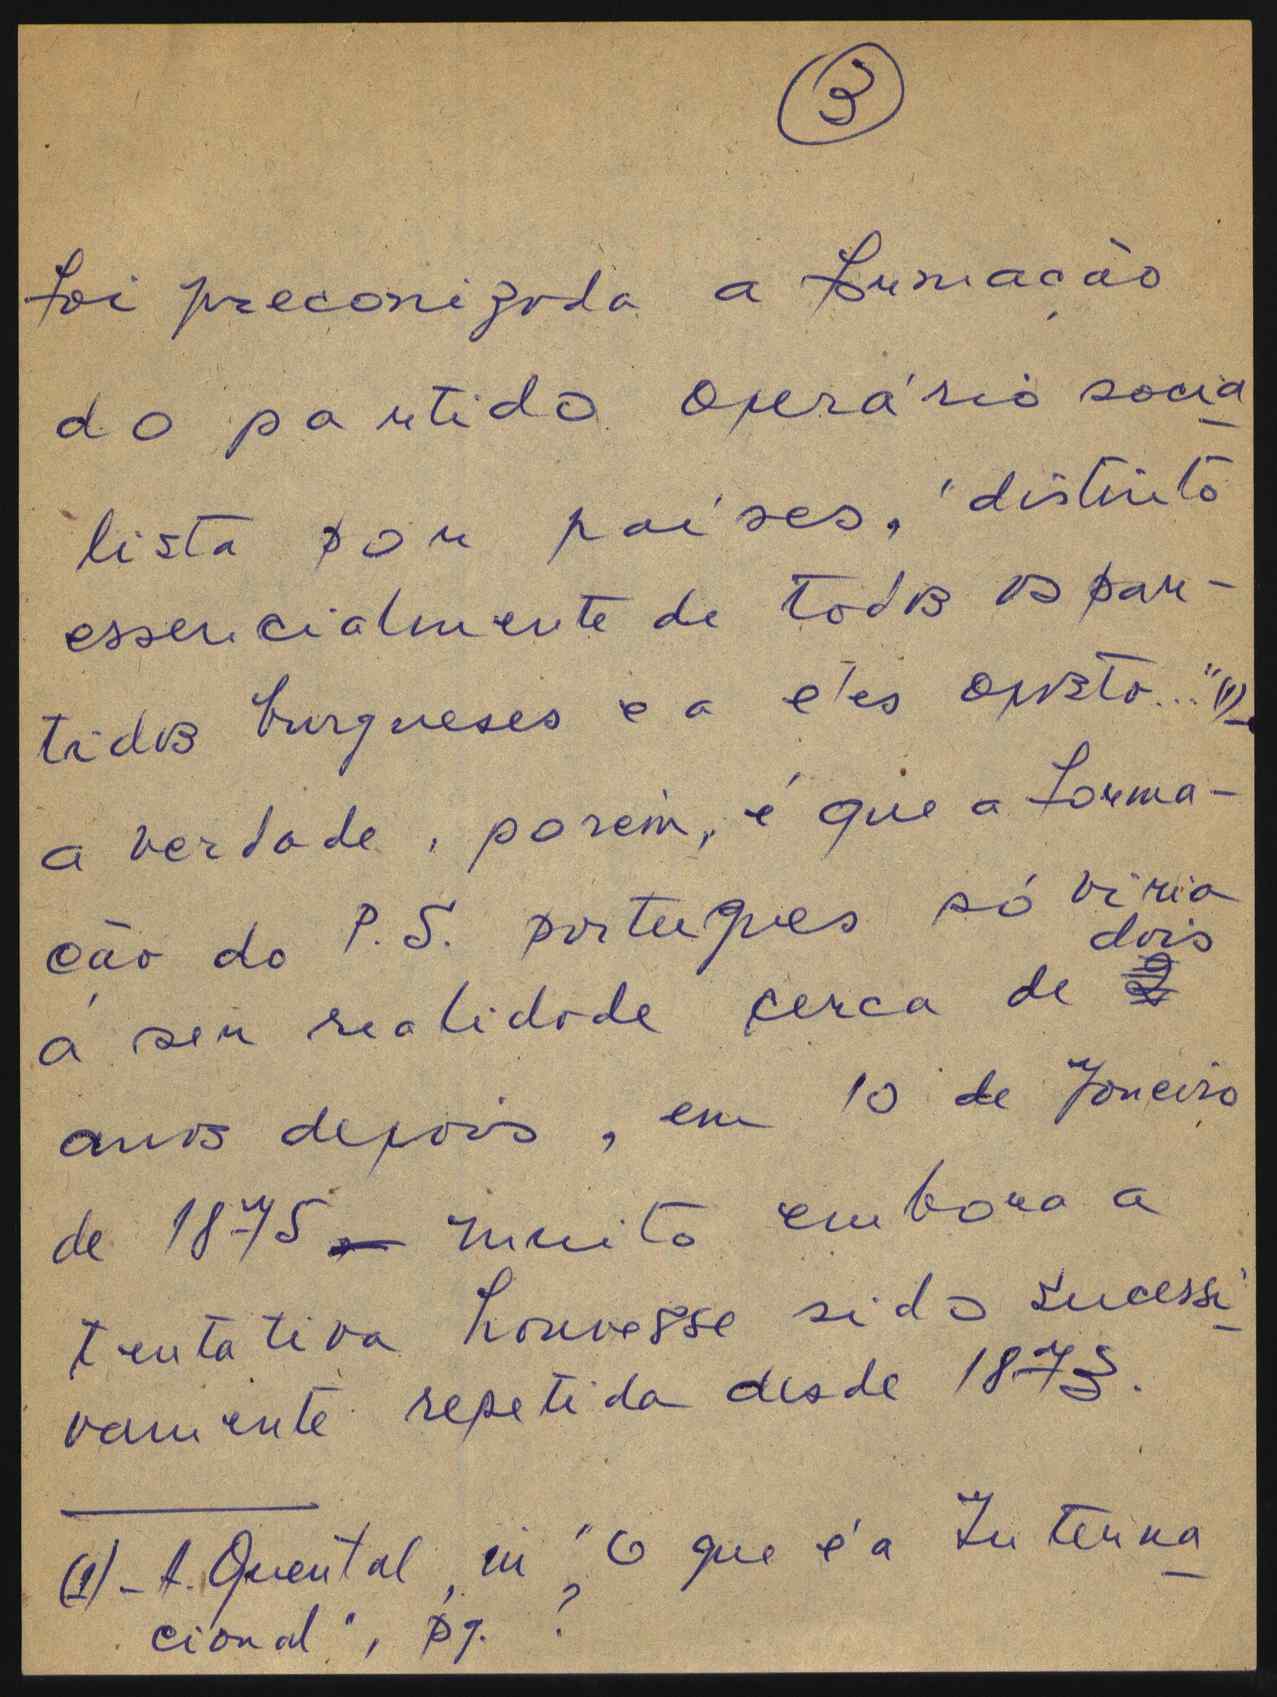 3
foi preconizada a formação
do partido operário socia
lista por países, "distinto
essencialmente de todos os par-
tidos burgueses e a êles oposto..." (1)
a verdade, porém, é que a forma-
ção do P.S. portugues só viria
dois
á ser realidade cerca de 2
anos depois, em 10 de Janeiro
de 1875 — muito embora a
tentativa houvesse sido sucessi
vamente repetida desde 1873.
(1) - A. Quental, in "O que é a Interna
cional", pg. ?